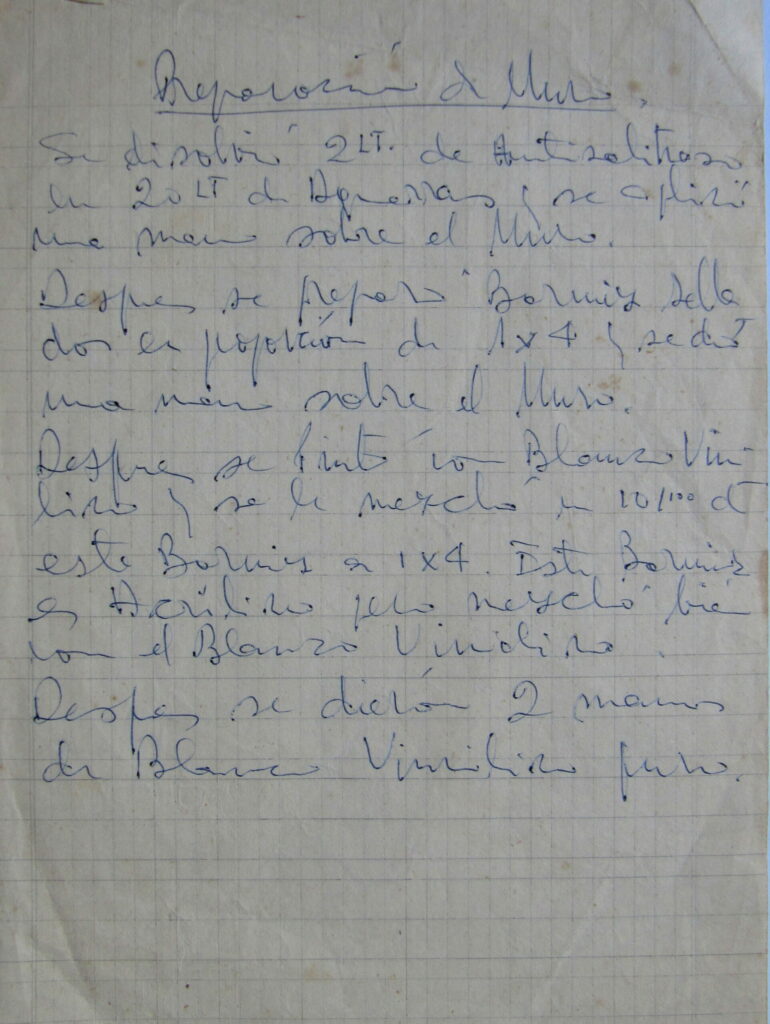 Preparación de Muro.
Se disolvió 2 LT. de Antisalitroso
en 20 LT de Aguarras y se aplicó
una mano sobre el Muro.
Despues se preparó Barniz sella
dor en proporción de 1x4 y se dió
una mano sobre el Muro.
Despues se pintó con Blanco Vini-
lico y se le mezcló un 10/100 de
este Barniz a 1x4. Este Barniz
es Acrílico pero mezcló bien
con el Blanco Vinilico.
Despues se dierón 2 manos
de Blanco Vinilico puro.